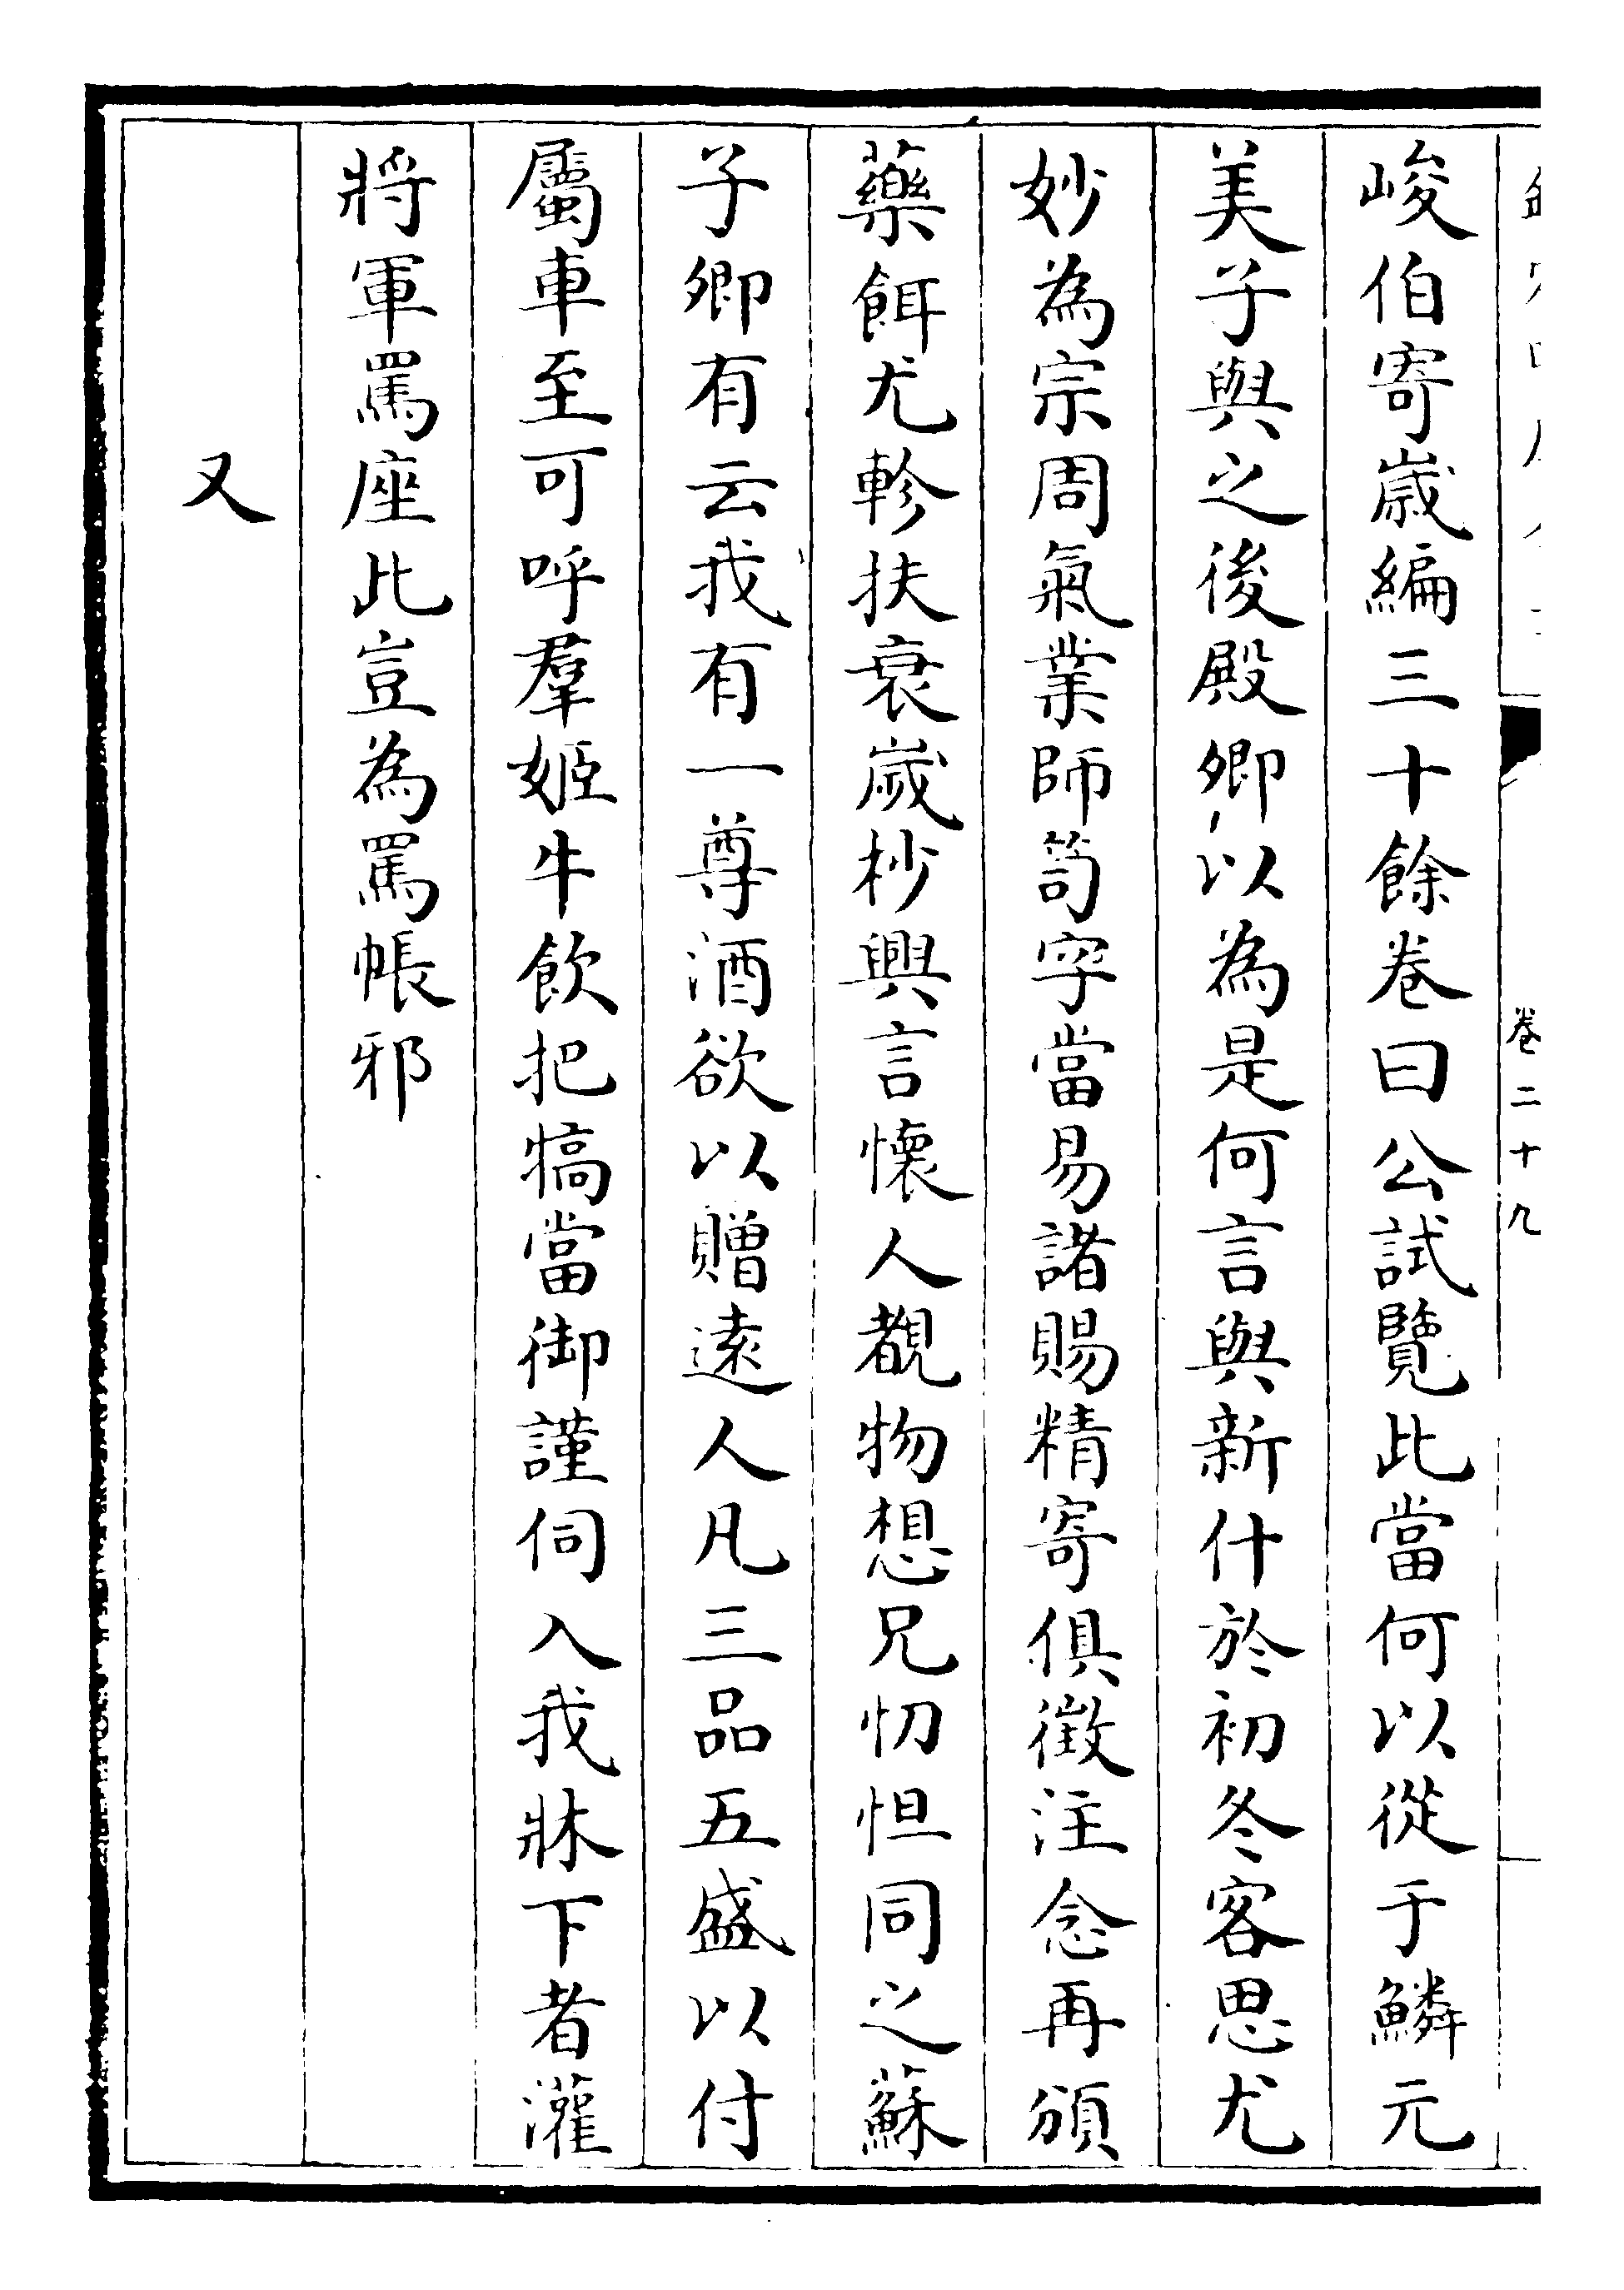 峻伯寄嵗編三十餘卷曰公試覽此當何以從于鱗元
美子與之後殿卿以為是何言與新什於初冬客思尤
妙為宗周氣業師笥字當易諸賜精寄俱徴注念再頒
藥餌尤軫扶衰嵗杪興言懐人覩物想兄忉怛同之蘇
子卿有云我有一尊酒欲以贈逺人凡三品五盛以付
屬車至可呼羣姬牛飲把犒當御謹伺入我牀下者灌
將軍罵座此豈為罵帳邪
又
卷二十九